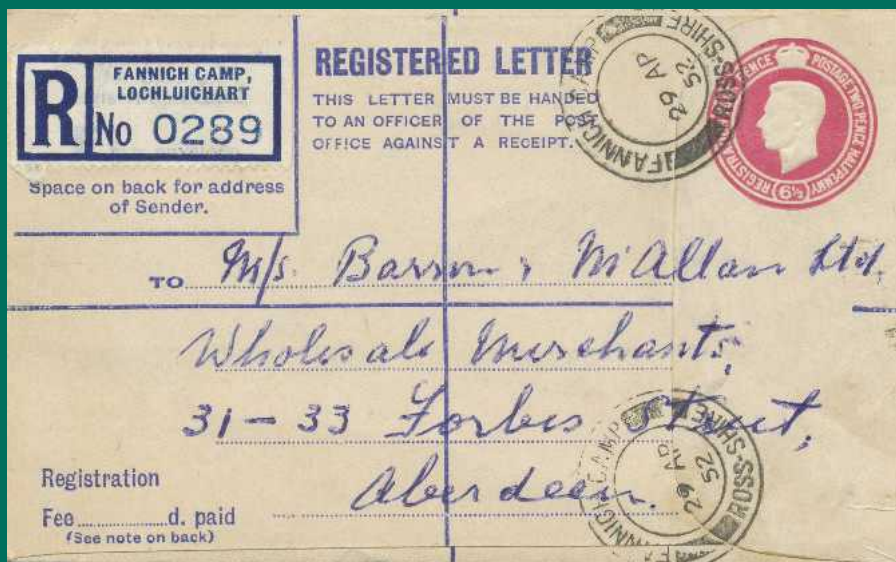 R
FANNICH CAMP,
LOCHLUICHART
No 0289
Space on back for address
of Sender.
REGISTERED LETTER
THIS LETTER MUST BE HANDED
TO AN OFFICER OF THE POST
OFFICE AGAINST A RECEIPT.
FANNICH CAMP ROSS-SHIRE
29 AP
52
POSTAGE TWO PENCE HALFPENNY
6½
TO M/s. Barron & McAllan Ltd.
Wholesale Merchants,
31-33 Forbes Street,
Aberdeen.
Registration
Fee d. paid
(See note on back)
FANNICH CAMP ROSS-SHIRE
29 AP
52